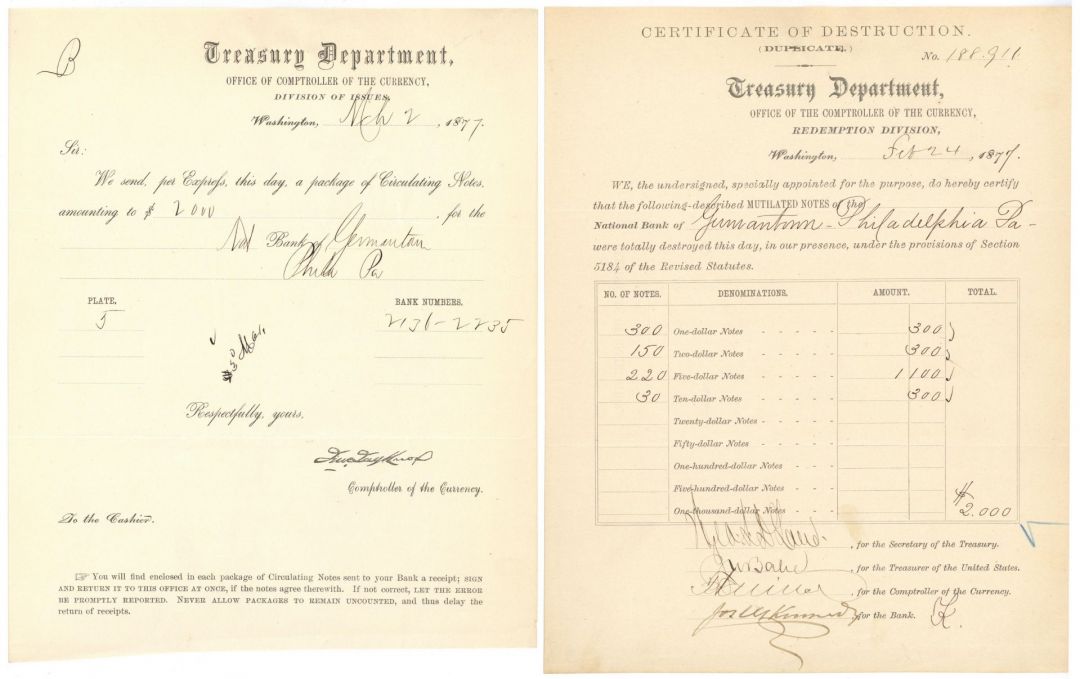 B
Treasury Department,
OFFICE OF COMPTROLLER OF THE CURRENCY,
DIVISION OF ISSUES,
Washington, Mch 2, 1877.
Sir:
We send, per Express, this day, a package of Circulating Notes,
amounting to $ 2000, for the
Nat Bank of Germantown
Phila Pa
PLATE.
BANK NUMBERS.
5
2136-2235
$50
Respectfully, yours,
Jno Jay Knox
Comptroller of the Currency.
To the Cashier.
☞ You will find enclosed in each package of Circulating Notes sent to your Bank a receipt; SIGN
AND RETURN IT TO THIS OFFICE AT ONCE, if the notes agree therewith. If not correct, LET THE ERROR
BE PROMPTLY REPORTED. NEVER ALLOW PACKAGES TO REMAIN UNCOUNTED, and thus delay the
return of receipts.
CERTIFICATE OF DESTRUCTION.
(DUPLICATE.)
No. 188.911
Treasury Department,
OFFICE OF THE COMPTROLLER OF THE CURRENCY,
REDEMPTION DIVISION,
Washington, Feb 24, 1877.
WE, the undersigned, specially appointed for the purpose, do hereby certify
that the following-described MUTILATED NOTES of the
National Bank of Germantown - Philadelphia Pa -
were totally destroyed this day, in our presence, under the provisions of Section
5184 of the Revised Statutes.
NO. OF NOTES. DENOMINATIONS. AMOUNT. TOTAL.
300 One-dollar Notes - - - - 300
150 Two-dollar Notes - - - - 300
220 Five-dollar Notes - - - - 1100
30 Ten-dollar Notes - - - - 300
Twenty-dollar Notes - - - -
Fifty-dollar Notes - - - -
One-hundred-dollar Notes - - -
Five-hundred-dollar Notes - - -
One-thousand-dollar Notes - - - $2.000
, for the Secretary of the Treasury.
, for the Treasurer of the United States.
, for the Comptroller of the Currency.
Jos W Kennedy, for the Bank. K.